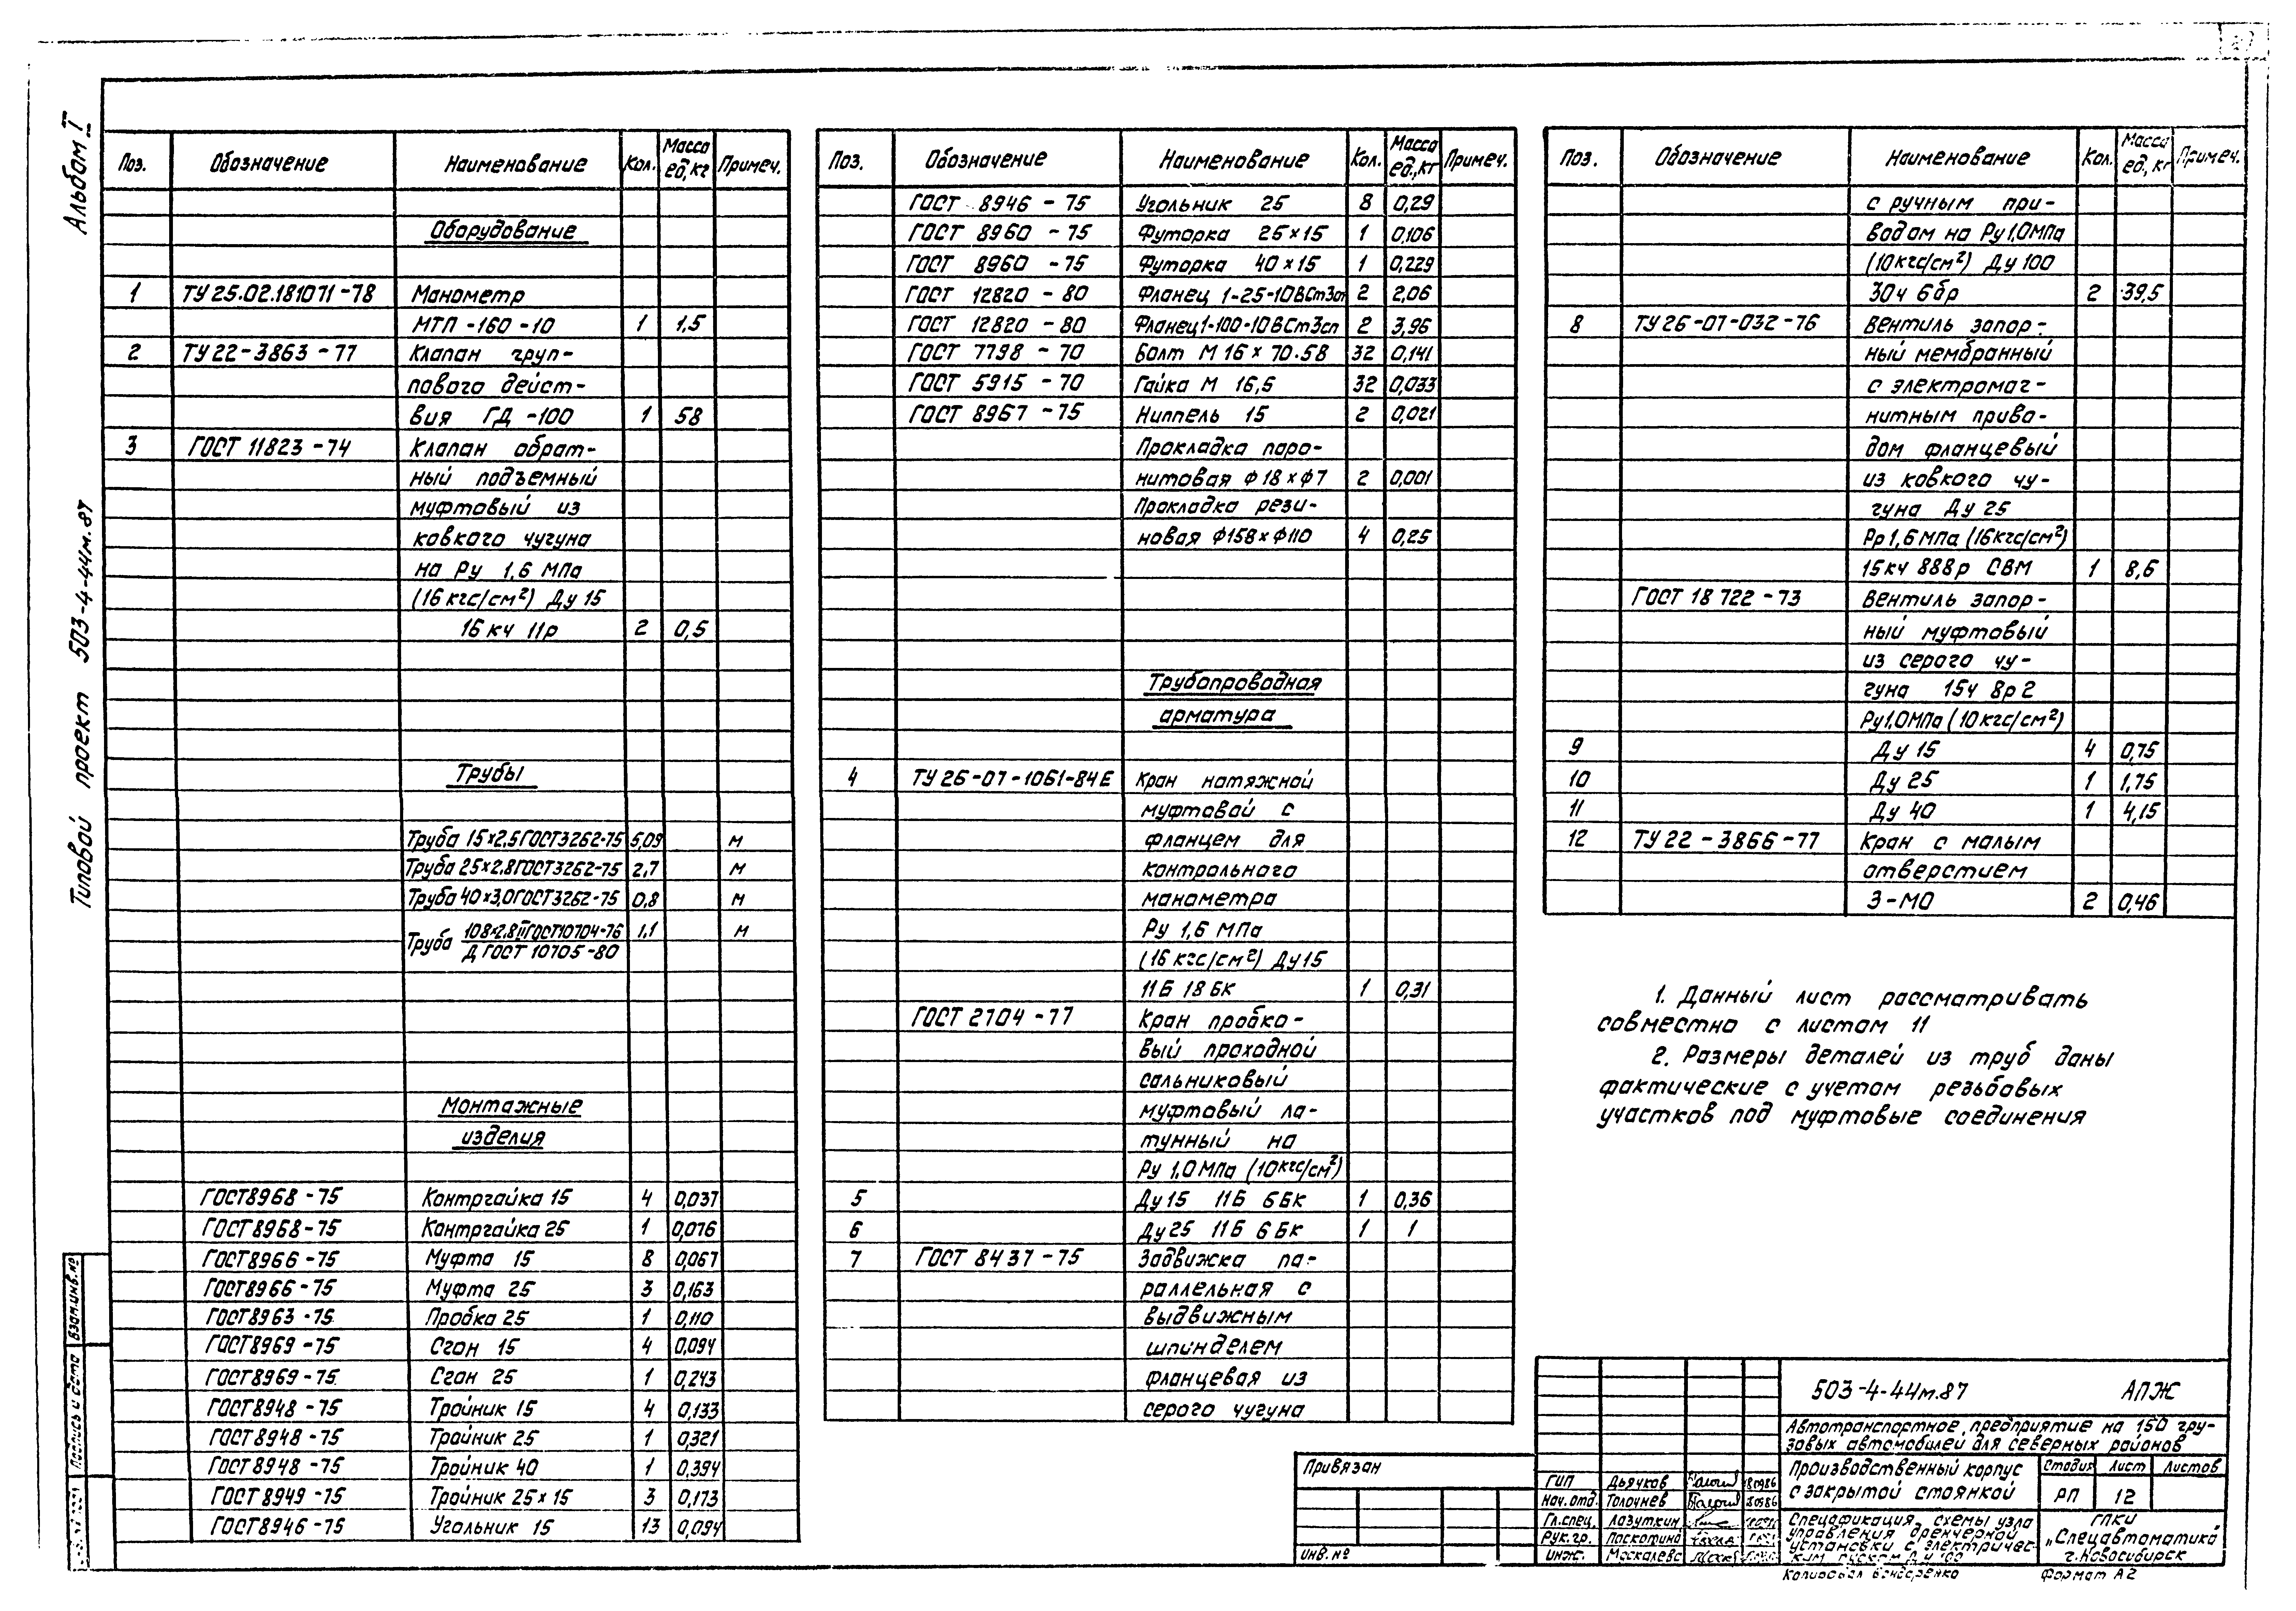 Альбом I
Типовой проект 503-4-44м.87
Поз. Обозначение Наименование Кол. Масса ед,кг Примеч.
Оборудование
1 ТУ 25.02.181071-78 Манометр
МТП-160-10 1 1,5
2 ТУ 22-3863-77 Клапан груп-
пового дейст-
вия ГД-100 1 58
3 ГОСТ 11823-74 Клапан обрат-
ный подъемный
муфтовый из
ковкого чугуна
на Ру 1,6 МПа
(16 кгс/см²) Ду 15
16 кч 11р 2 0,5
Трубы
Труба 15×2,5 ГОСТ 3262-75 5,09 м
Труба 25×2,8 ГОСТ 3262-75 2,7 м
Труба 40×3,0 ГОСТ 3262-75 0,8 м
Труба 108×2,8 II ГОСТ 10704-76 1,1 м
Д ГОСТ 10705-80
Монтажные
изделия
ГОСТ 8968-75 Контргайка 15 4 0,037
ГОСТ 8968-75 Контргайка 25 1 0,076
ГОСТ 8966-75 Муфта 15 8 0,067
ГОСТ 8966-75 Муфта 25 3 0,163
ГОСТ 8963-75 Пробка 25 1 0,110
ГОСТ 8969-75 Сгон 15 4 0,094
ГОСТ 8969-75 Сгон 25 1 0,243
ГОСТ 8948-75 Тройник 15 4 0,133
ГОСТ 8948-75 Тройник 25 1 0,321
ГОСТ 8948-75 Тройник 40 1 0,394
ГОСТ 8949-75 Тройник 25×15 3 0,173
ГОСТ 8946-75 Угольник 15 13 0,094
Поз. Обозначение Наименование Кол. Масса ед.,кг Примеч.
ГОСТ 8946-75 Угольник 25 8 0,29
ГОСТ 8960-75 Футорка 25×15 1 0,106
ГОСТ 8960-75 Футорка 40×15 1 0,229
ГОСТ 12820-80 Фланец 1-25-10ВСт3сп 2 2,06
ГОСТ 12820-80 Фланец 1-100-10ВСт3сп 2 3,96
ГОСТ 7798-70 Болт М16×70.58 32 0,141
ГОСТ 5915-70 Гайка М 16,5 32 0,033
ГОСТ 8967-75 Ниппель 15 2 0,021
Прокладка паро-
нитовая Ф18×Ф7 2 0,001
Прокладка рези-
новая Ф158×Ф110 4 0,25
Трубопроводная
арматура
4 ТУ 26-07-1061-84Е Кран натяжной
муфтовой с
фланцем для
контрольного
манометра
Ру 1,6 МПа
(16 кгс/см²) Ду15
11Б 18 БК 1 0,31
ГОСТ 2704-77 Кран пробко-
вый проходной
сальниковый
муфтовый ла-
тунный на
Ру 1,0 МПа (10кгс/см²)
5 Ду 15 11Б 6БК 1 0,36
6 Ду 25 11Б 6 БК 1 1
7 ГОСТ 8437-75 Задвижка па-
раллельная с
выдвижным
шпинделем
фланцевая из
серого чугуна
Поз. Обозначение Наименование Кол. Масса ед., кг Примеч.
с ручным при-
водом на Ру 1,0МПа
(10кгс/см²) Ду 100
30ч 6бр 2 39,5
8 ТУ 26-07-032-76 Вентиль запор-
ный мембранный
с электромаг-
нитным приво-
дом фланцевый
из ковкого чу-
гуна Ду 25
Рр 1,6 МПа (16кгс/см²)
15кч 888р СВМ 1 8,6
ГОСТ 18722-73 Вентиль запор-
ный муфтовый
из серого чу-
гуна 15ч 8р2
Ру 1,0МПа (10кгс/см²)
9 Ду 15 4 0,75
10 Ду 25 1 1,75
11 Ду 40 1 4,15
12 ТУ 22-3866-77 Кран с малым
отверстием
3-МО 2 0,46
1. Данный лист рассматривать
совместно с листом 11
2. Размеры деталей из труб даны
фактические с учетом резьбовых
участков под муфтовые соединения
Взам.инв.№
Подпись и дата
Привязан
Инв. №
ГИП Дьячков 180986
Нач.отд. Толочнев
Гл.спец. Лазуткин
Рук.гр.
Инж.
503-4-44м.87 АПЖ
Автотранспортное предприятие на 150 гру-
зовых автомобилей для северных районов
Производственный корпус
с закрытой стоянкой
Стадия Лист Листов
РП 12
Спецификация схемы узла
управления дренчерной
установки с электричес-
ким пуском Ду 100
ГПКИ
„Спецавтоматика"
г.Новосибирск
Копировал Бондаренко Формат А2